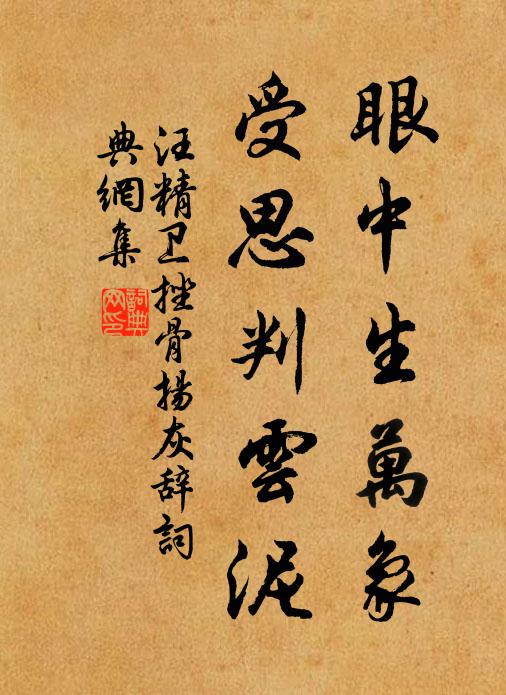 眼中生萬象
受思判雲泥
汪精卫挫骨揚灰辞詞
典網集
詞典
网印